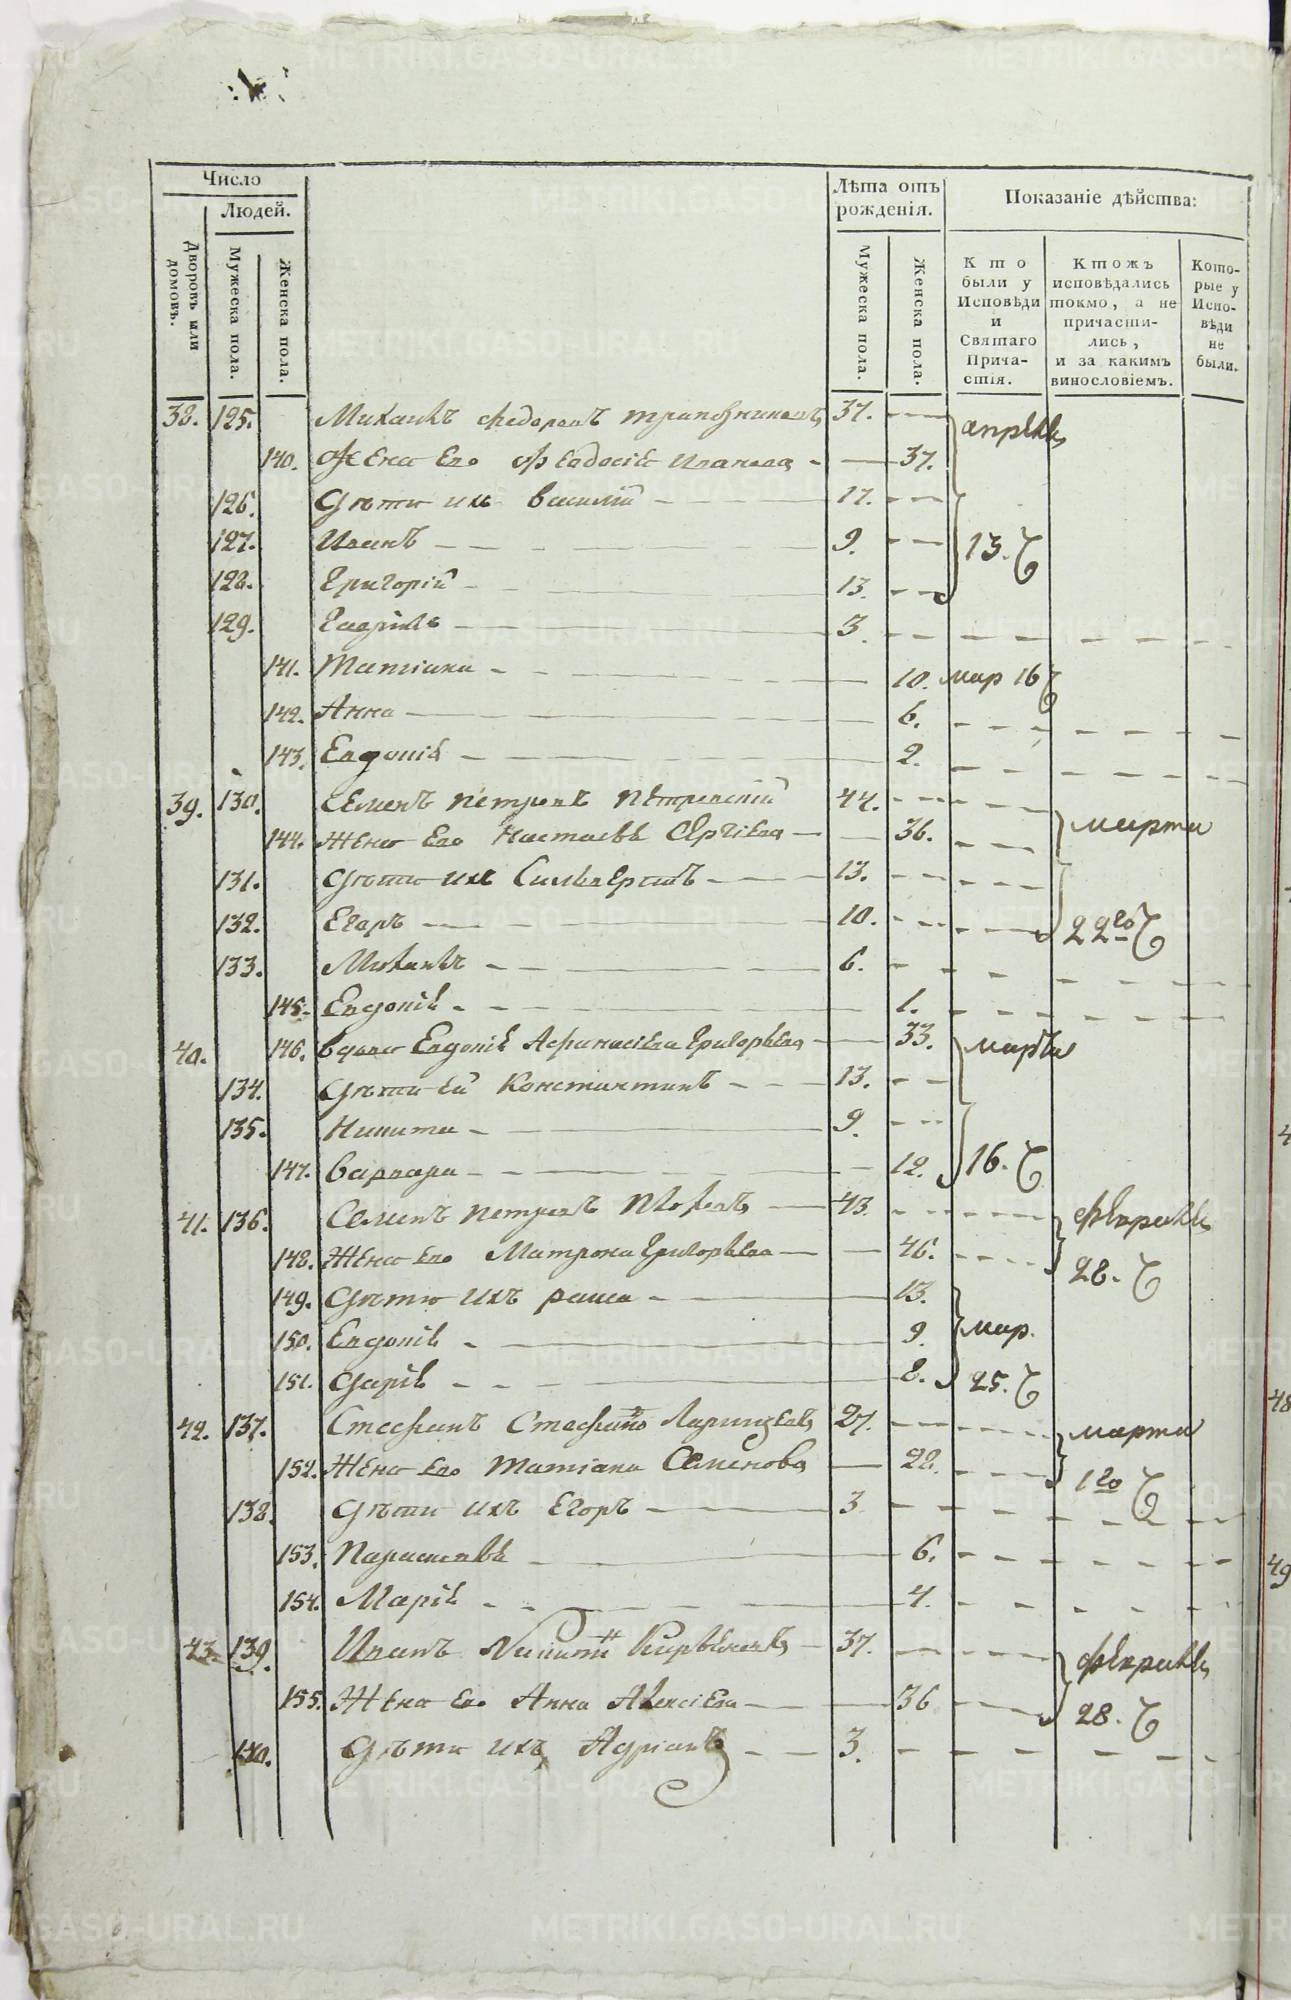 Число
Людей.
Дворовъ или домовъ.
Мужеска пола.
Женска пола.
Лѣта отъ рожденія.
Мужеска пола.
Женска пола.
Показаніе дѣйства:
Кто были у Исповѣди и Святаго Причастія.
Ктожъ исповѣдались токмо, а не причастились, и за какимъ винословіемъ.
Которые у Исповѣди не были.
38. 125. Михаилъ Федоровъ 37. апрѣля
140. Жена его Феодосія Иванова 37.
126. Дѣти ихъ Василій 17.
127. Иванъ 9. 13.
128. Григорій 13.
129. Гаврилъ 3.
141. Татіана 10. мар 16
142. Анна 6.
143. Евдокія 2.
39. 130. Семенъ Петровъ Петровскій 44. марта
144. Жена его Настасья Сергіева 36.
131. Дѣти ихъ Сильвестръ 13.
132. Егоръ 10. 22го
133. Михаилъ 6.
145. Евдокія 1.
40. 146. Вдова Евдокія Афанасіева Григорьева 33. марта
134. Дѣти ей Константинъ 13.
135. Никита 9.
147. Варвара 12. 16.
41. 136. Семенъ Петровъ 43. февраля
148. Жена его Матрона Григорьева 46. 28.
149. Дѣти ихъ 13.
150. Евдокія 9. мар.
151. Дарія 8. 25.
42. 137. Стефанъ 27. марта
152. Жена его Татіана Семенова 22. 1го
138. Дѣти ихъ Егоръ 3
153. Параскевья 6.
154. Марія 4.
43. 139. Иванъ Никитинъ 37. февраля
155. Жена его Анна Алексіева 36 28.
140. Дѣти ихъ Адріанъ 3.
METRIKI.GASO-URAL.RU